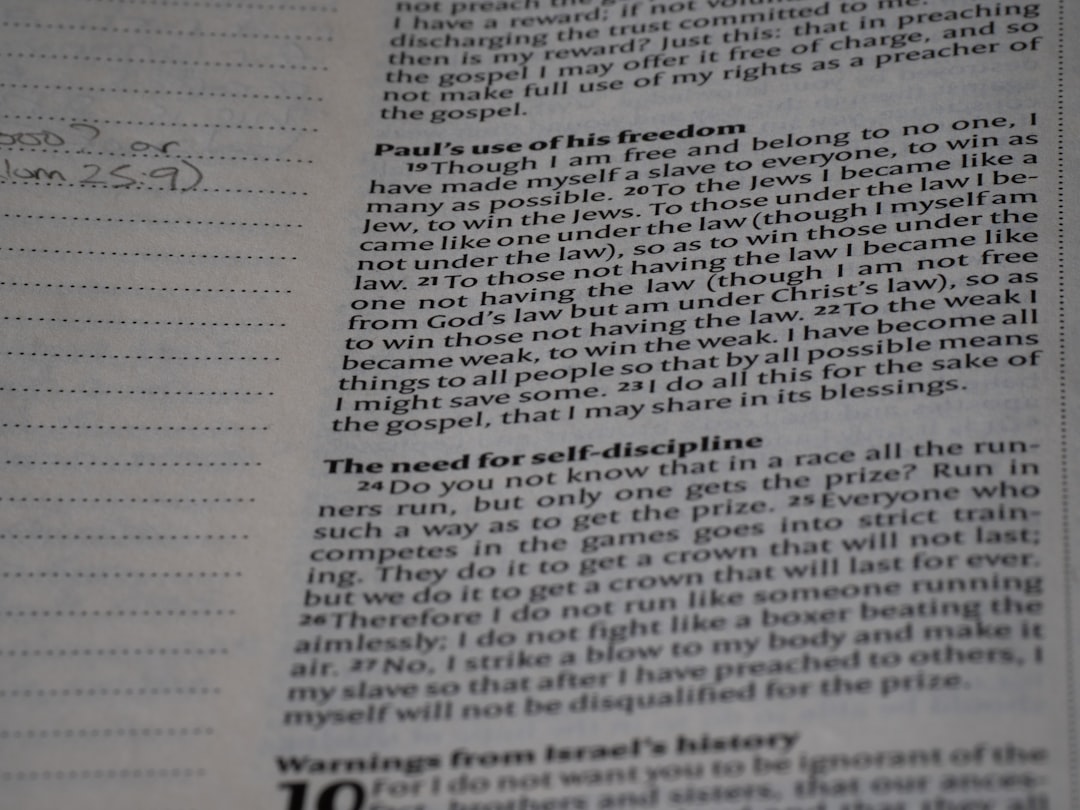 not preach the
I have a reward; if not
discharging the trust committed to me.
then is my reward? Just this: that in preaching
the gospel I may offer it free of charge, and so
not make full use of my rights as a preacher of
the gospel.
Paul's use of his freedom
19 Though I am free and belong to no one, I
have made myself a slave to everyone, to win as
many as possible. 20 To the Jews I became like a
Jew, to win the Jews. To those under the law I be-
came like one under the law (though I myself am
not under the law), so as to win those under the
law. 21 To those not having the law I became like
one not having the law (though I am not free
from God's law but am under Christ's law), so as
to win those not having the law. 22 To the weak I
became weak, to win the weak. I have become all
things to all people so that by all possible means
I might save some. 23 I do all this for the sake of
the gospel, that I may share in its blessings.
The need for self-discipline
24 Do you not know that in a race all the run-
ners run, but only one gets the prize? Run in
such a way as to get the prize. 25 Everyone who
competes in the games goes into strict train-
ing. They do it to get a crown that will not last;
but we do it to get a crown that will last for ever.
26 Therefore I do not run like someone running
aimlessly; I do not fight like a boxer beating the
air. 27 No, I strike a blow to my body and make it
my slave so that after I have preached to others, I
myself will not be disqualified for the prize.
Warnings from Israel's history
10 For I do not want you to be ignorant of the
brothers and sisters, that our ances-
or
25:9)